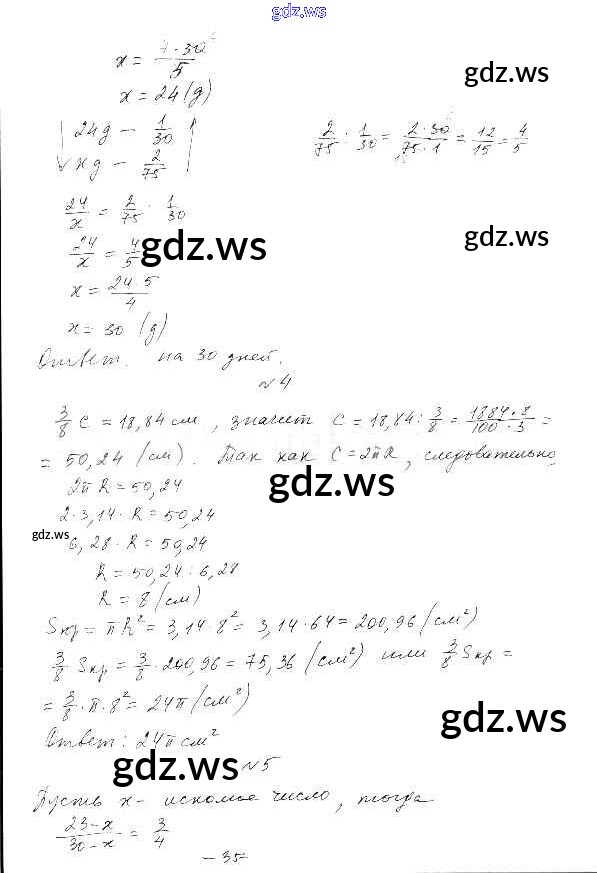 gdz.ws
x = 7·30/5
gdz.ws
x = 24 (g)
24g — 1/30
x g — 2/75
2/75 : 1/30 = 2·30/75·1 = 12/15 = 4/5
24/x = 2/75 : 1/30
24/x = 4/5
gdz.ws
gdz.ws
x = 24·5/4
x = 30 (g)
Ответ. на 30 дней.
№4
3/8 C = 18,84 см, значит C = 18,84 : 3/8 = 1884·8/100·3 =
= 50,24 (см). Так как C = 2πR, следовательно,
2πR = 50,24
gdz.ws
2·3,14·R = 50,24
gdz.ws
6,28·R = 50,24
R = 50,24 : 6,28
R = 8 (см)
Sкр = πR² = 3,14·8² = 3,14·64 = 200,96 (см²)
3/8 Sкр = 3/8·200,96 = 75,36 (см²) или 3/8 Sкр =
= 3/8·π·8² = 24π (см²)
gdz.ws
Ответ: 24π см²
gdz.ws
№5
Пусть x - искомое число, тогда
23-x/30-x = 3/4
- 35-